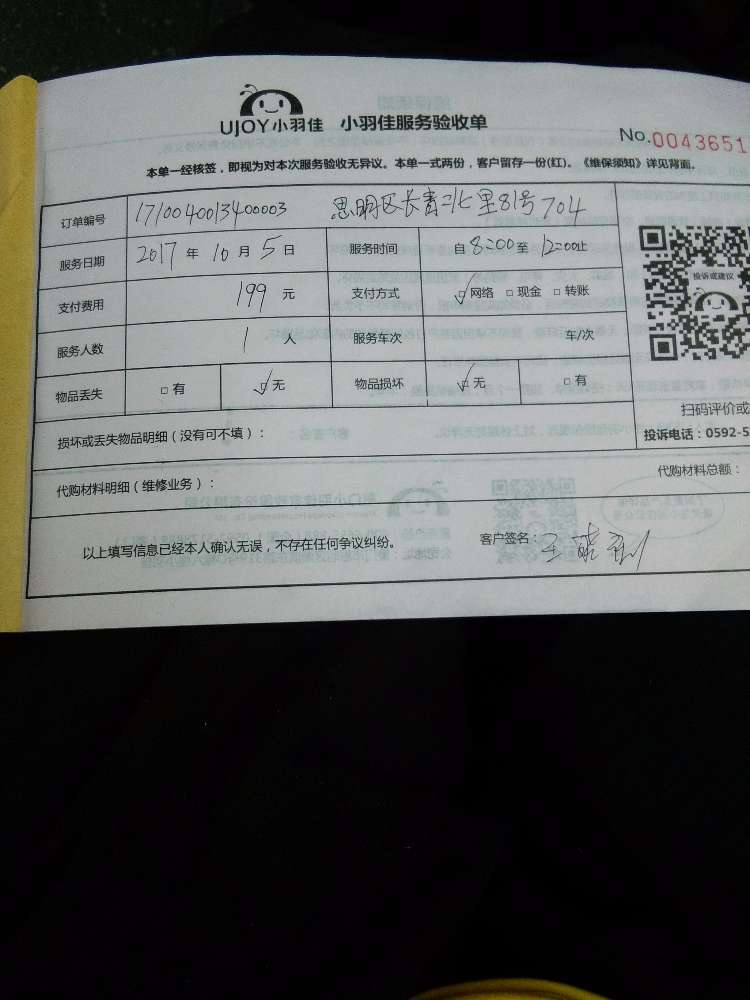 UJOY小羽佳 小羽佳服务验收单
No.0043651
本单一经核签，即视为对本次服务验收无异议。本单一式两份，客户留存一份(红)。《维保须知》详见背面。
订单编号 171004001340003 思明区长青北里81号704
服务日期 2017 年 10 月 5 日 服务时间 自 8:00 至 12:00止
投诉或建议
支付费用 199 元 支付方式 ☑网络 □现金 □转账
服务人数 1 人 服务车次 车/次
物品丢失 □有 ☑无 物品损坏 ☑无 □有
扫码评价或
损坏或丢失物品明细（没有可不填）：
投诉电话：0592-5
代购材料明细（维修业务）：
代购材料总额：
以上填写信息已经本人确认无误，不存在任何争议纠纷。 客户签名：王